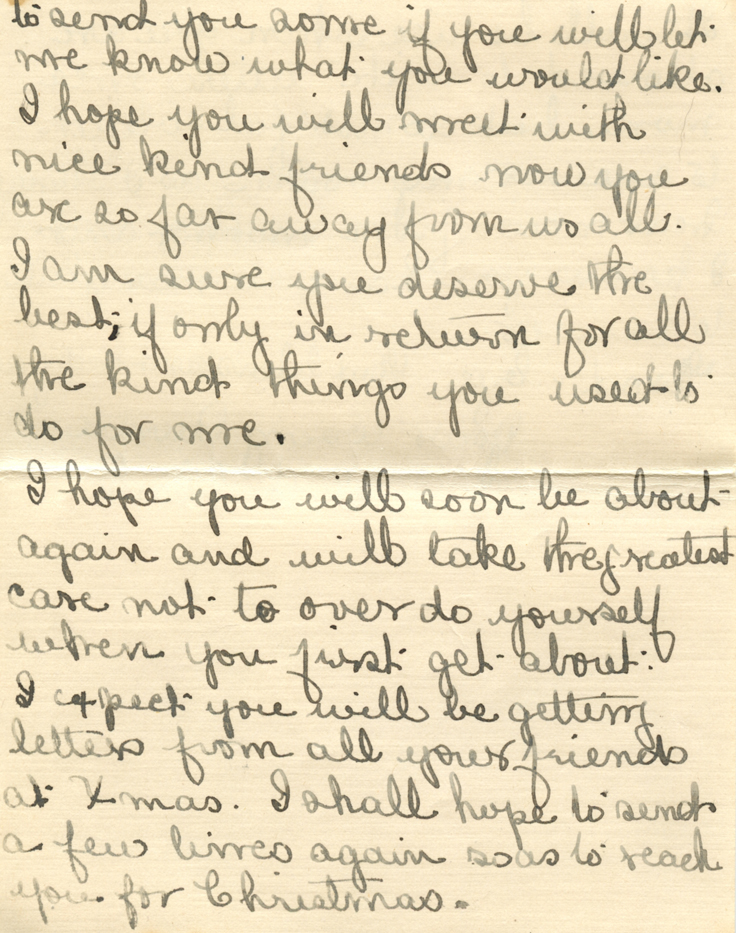 to send you some if you will let
me know what you would like.
I hope you will meet with
nice kind friends now you
are so far away from us all.
I am sure you deserve the
best, if only in return for all
the kind things you used to
do for me.
I hope you will soon be about
again and will take the greatest
care not to over do yourself
when you first get about.
I expect you will be getting
letters from all your friends
at Xmas. I shall hope to send
a few lines again so as to reach
you for Christmas.